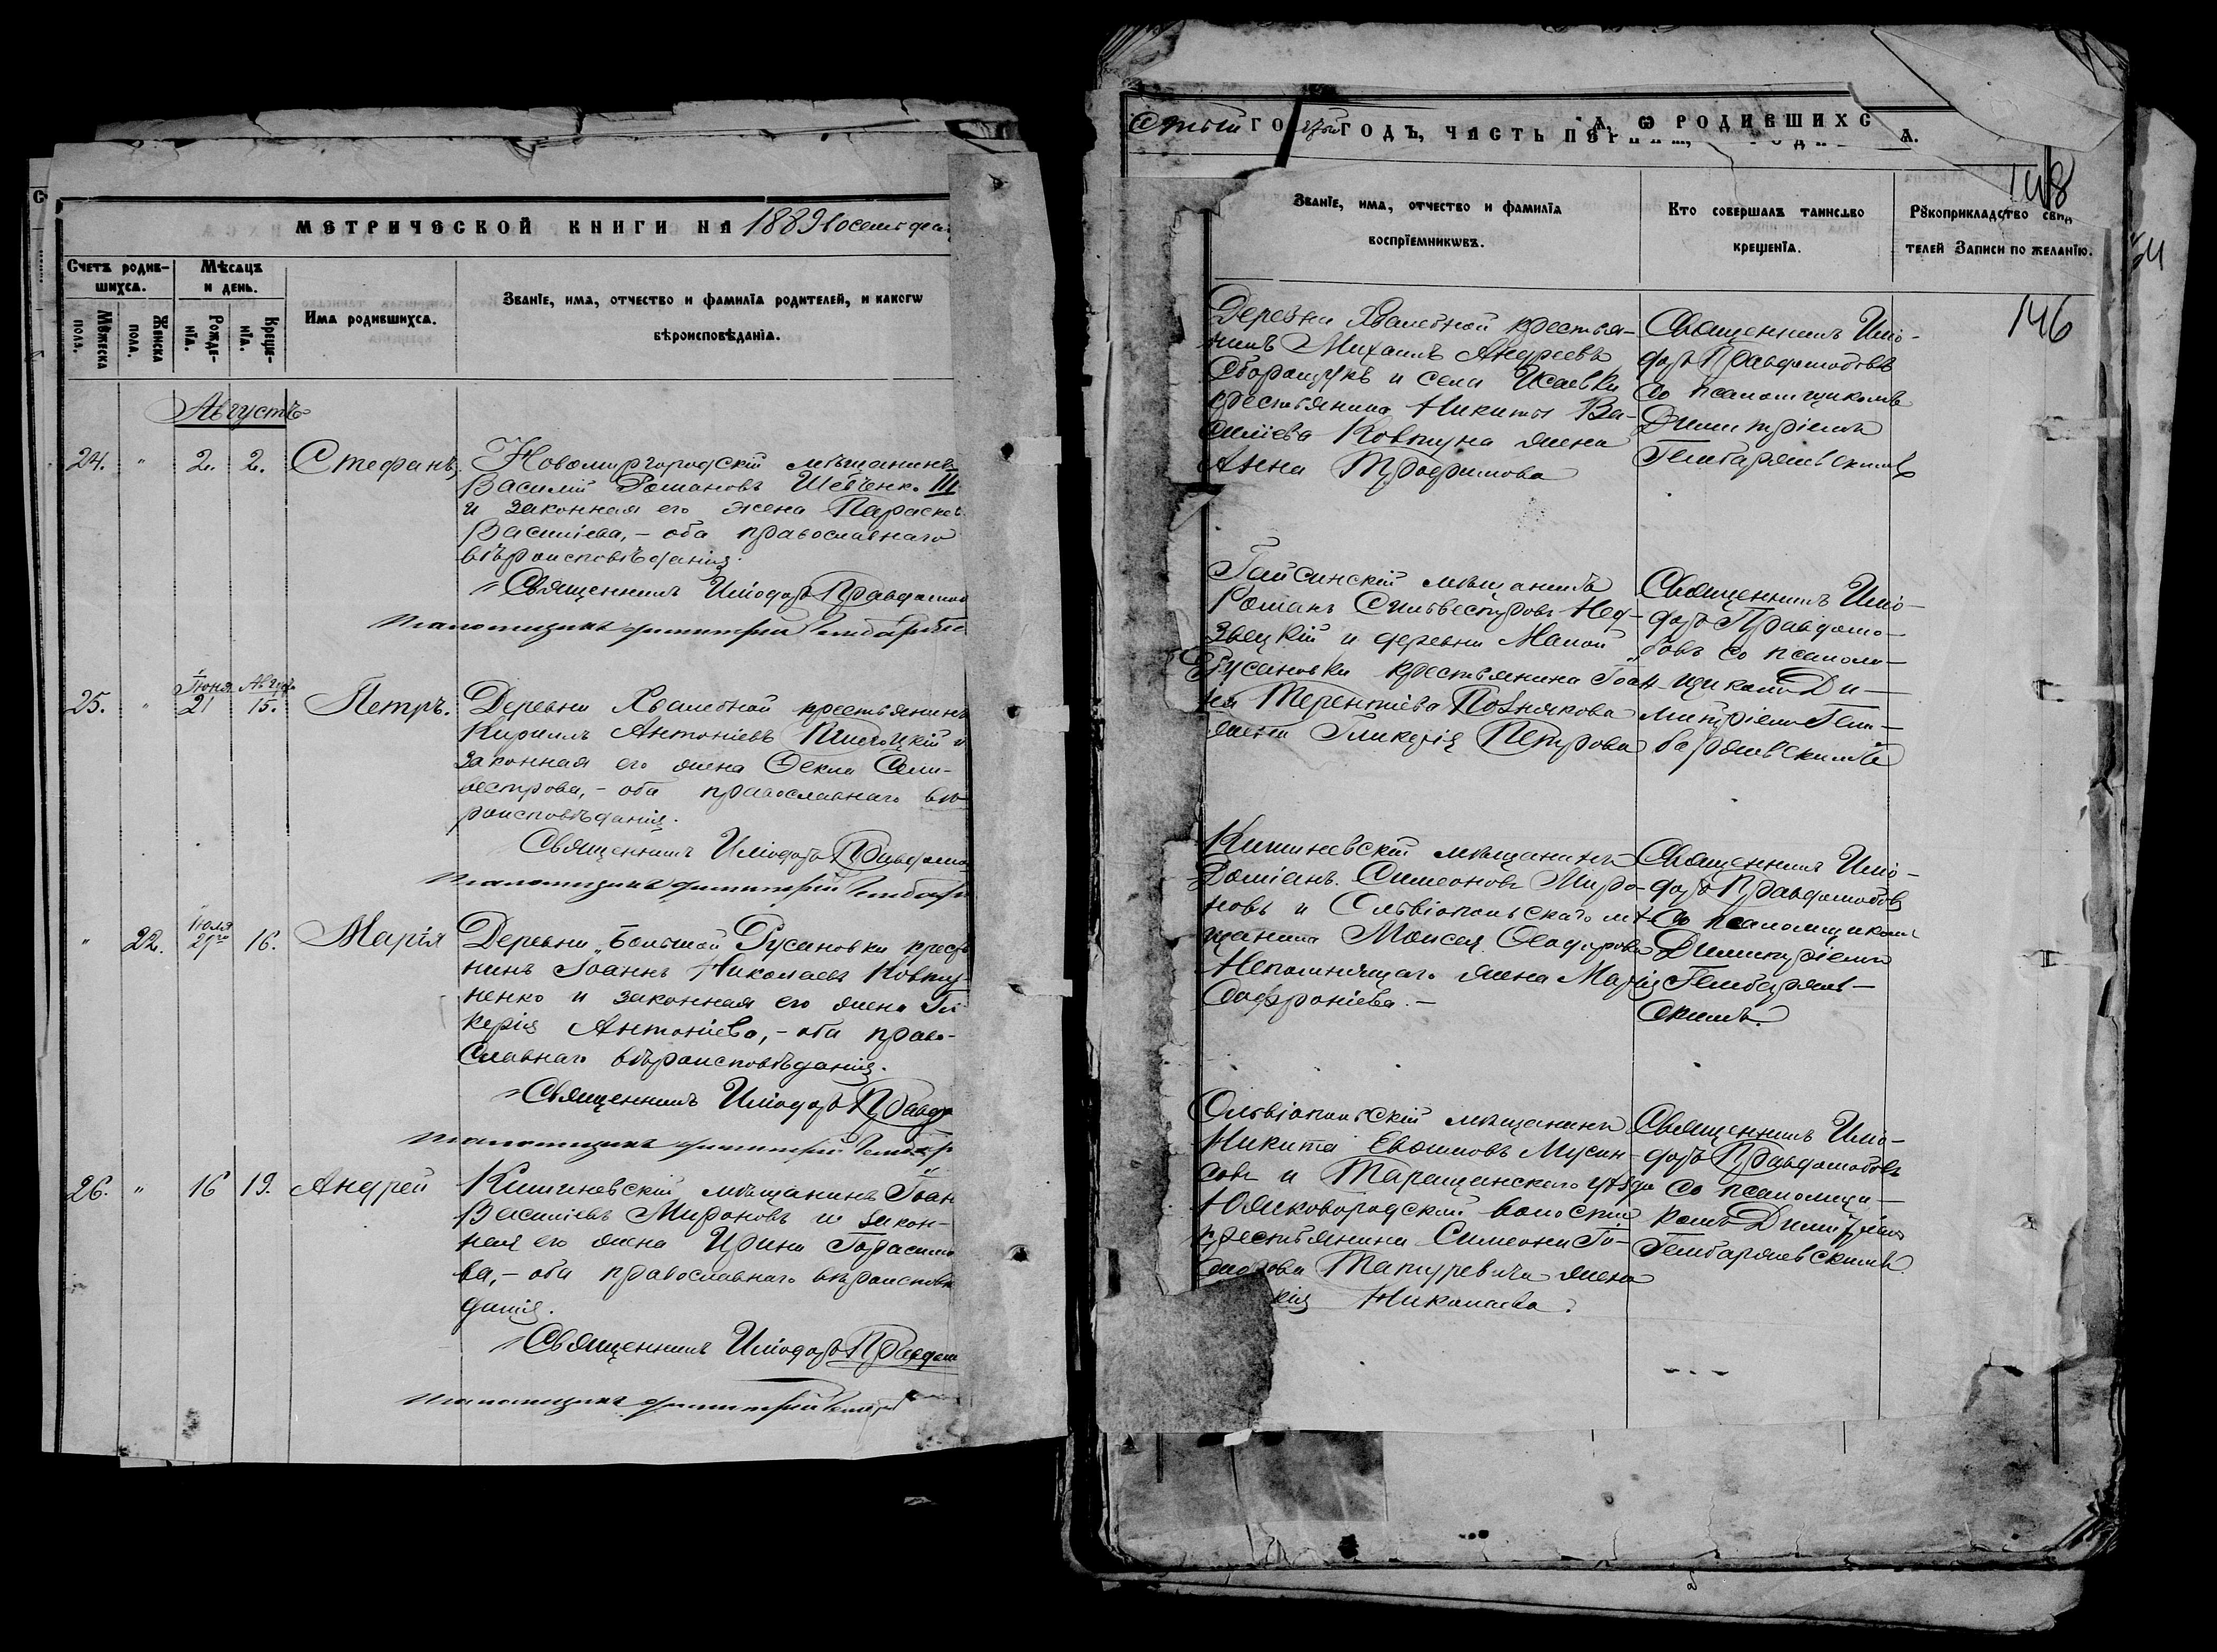 МЕТРИЧЕСКОЙ КНИГИ НА 1889
Счетъ родив-
шихся.
Мѣсяцъ
и день.
Имя родившихся.
Званїе, имя, отчество и фамилїя родителей, и какогѡ
вѣроисповѣданїя.
Мужеска
пола.
Женска
пола.
Рожде-
нїя.
Креще-
нїя.
Августъ
24. " 2. 2. Стефанъ,
Новомиргородскій мѣщанинъ
Василій Романовъ Шевченко III
и законная его жена Параскев
Василіева, – оба православнаго
вѣроисповѣданія.
Священникъ
Псаломщикъ Димитрій
25. " Іюня 21 Август 15. Петръ.
Деревни Хвалебной крестьянинъ
Кириллъ Антоніевъ и
законная его жена Ѳекла Силь-
вестрова, – оба православнаго вѣ-
роисповѣданія.
Священникъ
Псаломщикъ Димитрій
" 22. Іюля 29го 16. Марія
Деревни „Большой Русановки крестья
нинъ Іоаннъ Николаевъ Ковту-
ненко и законная его жена Гли
керія Антоніева, – оба право-
славнаго вѣроисповѣданія.
Священникъ
Псаломщикъ Димитрій
26. " 16 19. Андрей
Кишиневскій мѣщанинъ Іоан
Василіевъ Мироновъ и закон-
ная его жена Ирина Гарасимо
ва, – оба православнаго вѣроисповѣ
данія.
Священникъ
Псаломщикъ Димитрій
ГОДЪ, ЧАСТЬ ПЕРВАЯ,
Ѡ РОДИВШИХС
Я.
148
Званїе, имя, отчество и фамилїя
воспрїемникѡвъ.
Кто совершалъ таинство
крещенїя.
Рукоприкладство свид
телей записи по желанїю.
146
Деревни Хвалебной крестья-
нинъ Михаилъ Андреевъ
и села Исаевки
крестьянина Никиты Ва-
силіева Ковтуна жена
Анна Трофимова
Священникъ Илió-
доръ Правдолюбовъ
со псаломщикомъ
Димитріемъ
Гембаржевскимъ
Гайсинскій мѣщанинъ
Романъ Сильвестровъ Нед-
звецкій и деревни Малой
„Русановки крестьянина Іоан-
на Терентіева Познякова
жена Гликерія Петрова
Священникъ Иліо-
доръ Правдолю-
бовъ со псалом-
щикомъ Ди-
митріемъ Гем-
баржевскимъ
Кишиневскій мѣщанинъ
Доміанъ Симеоновъ Миро-
новъ и Ольвіопольскаго мѣ-
щанина Моисея Ѳеодорова
Непомнящаго жена Марія
Софроніева. –
Священникъ Иліо-
доръ Правдолюбовъ
со псаломщикомъ
Димитріемъ
Гембаржев-
скимъ.
Ольвіопольскій мѣщанинъ
Никита
и Таращанскаго уѣзда
волости
крестьянина Симеона
жена
кія Николаева.
Священникъ Иліо-
доръ Правдолюбовъ
со псаломщи-
комъ Димитріемъ
Гембаржевскимъ.